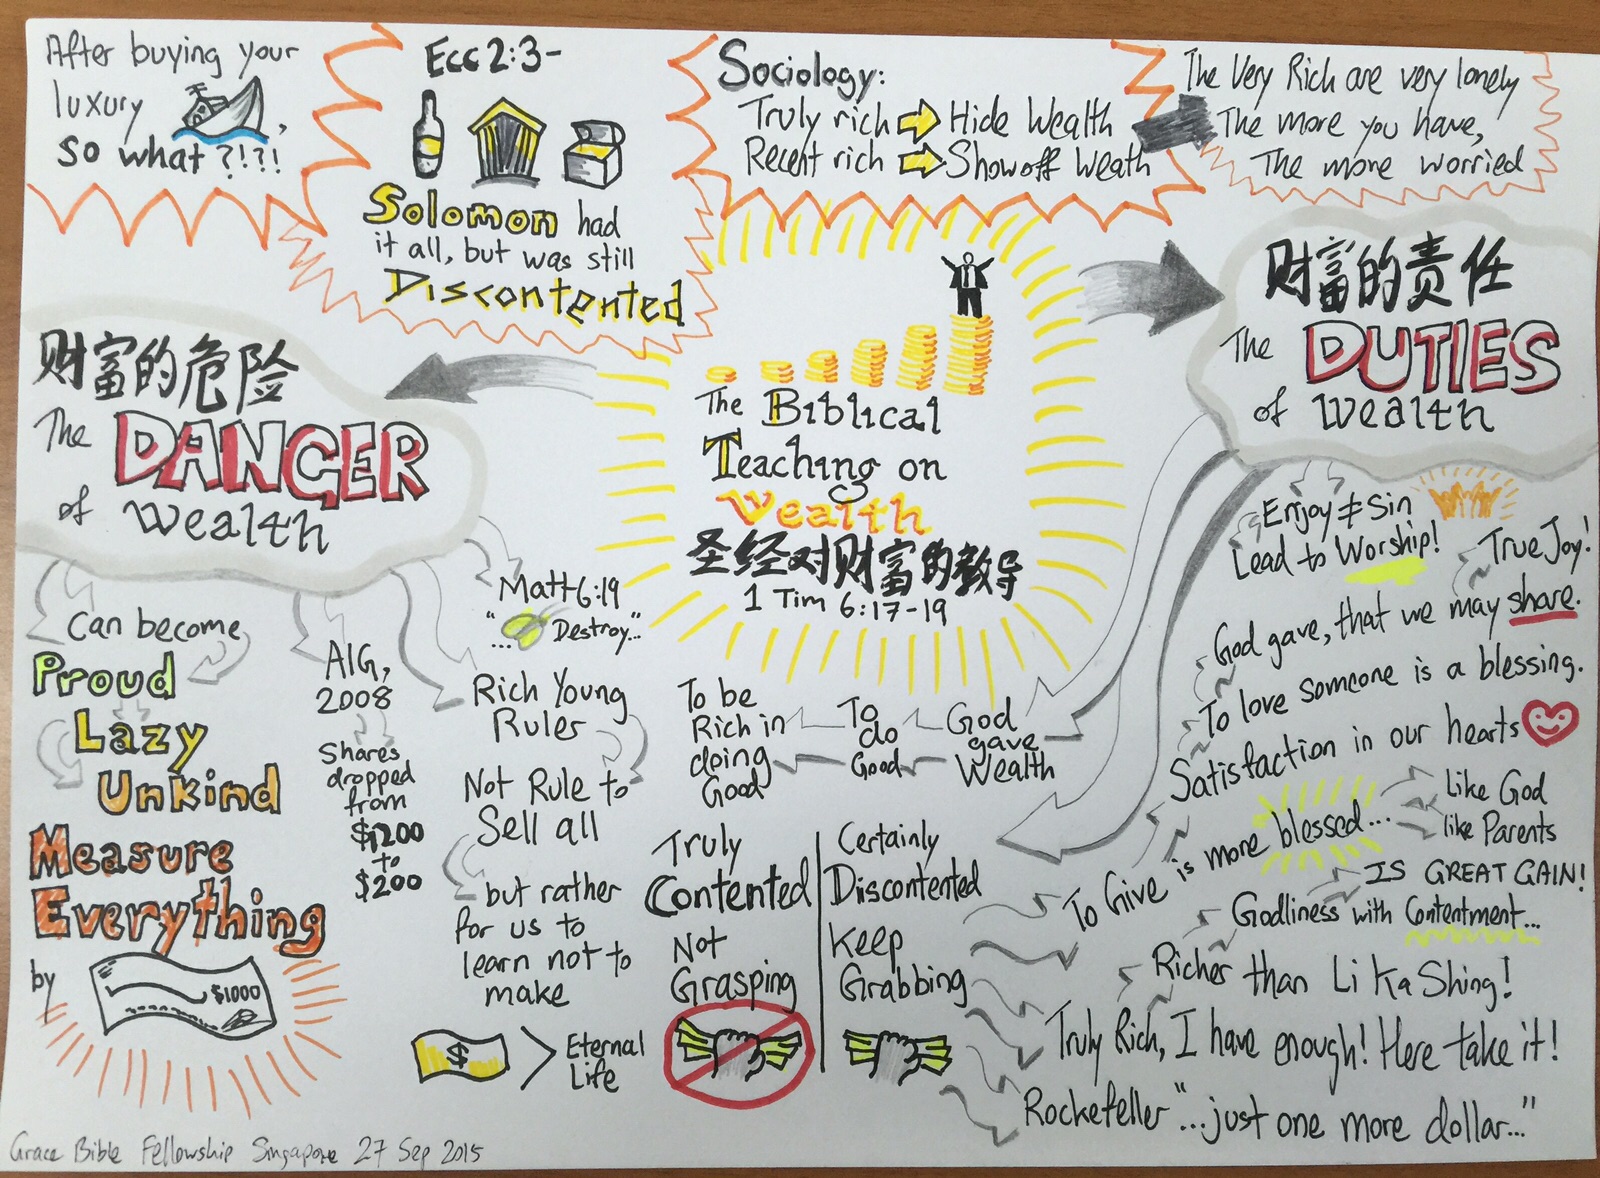 After buying your
luxury ,
so what ?!?!
Ecc 2:3-
Solomon had
it all, but was still
Discontented
Sociology:
Truly rich Hide Wealth
Recent rich Show off Weath
The Very Rich are very lonely
The more you have,
The more worried
The Biblical
Teaching on
Wealth
圣经对财富的教导
1 Tim 6:17-19
财富的危险
The DANGER
of Wealth
Can become
Proud
Lazy
Unkind
Measure
Everything
by
$1000
AIG,
2008
Shares
dropped
from
$1200
to
$200
Matt 6:19
"... Destroy..."
Rich Young
Ruler
Not Rule to
Sell all
but rather
for us to
learn not to
make
$ > Eternal
Life
财富的责任
The DUTIES
of Wealth
God
gave
Wealth
To
do
Good
To be
Rich in
doing
Good
Truly
Contented
Not
Grasping
Certainly
Discontented
Keep
Grabbing
Enjoy ≠ Sin
Lead to Worship!
True Joy!
God gave, that we may share.
To love someone is a blessing.
Satisfaction in our hearts
To Give is more blessed...
Like God
like Parents
Godliness with Contentment...
IS GREAT GAIN!
Richer than Li Ka Shing!
Truly Rich, I have enough! Here take it!
Rockefeller "...just one more dollar..."
Grace Bible Fellowship Singapore 27 Sep 2015